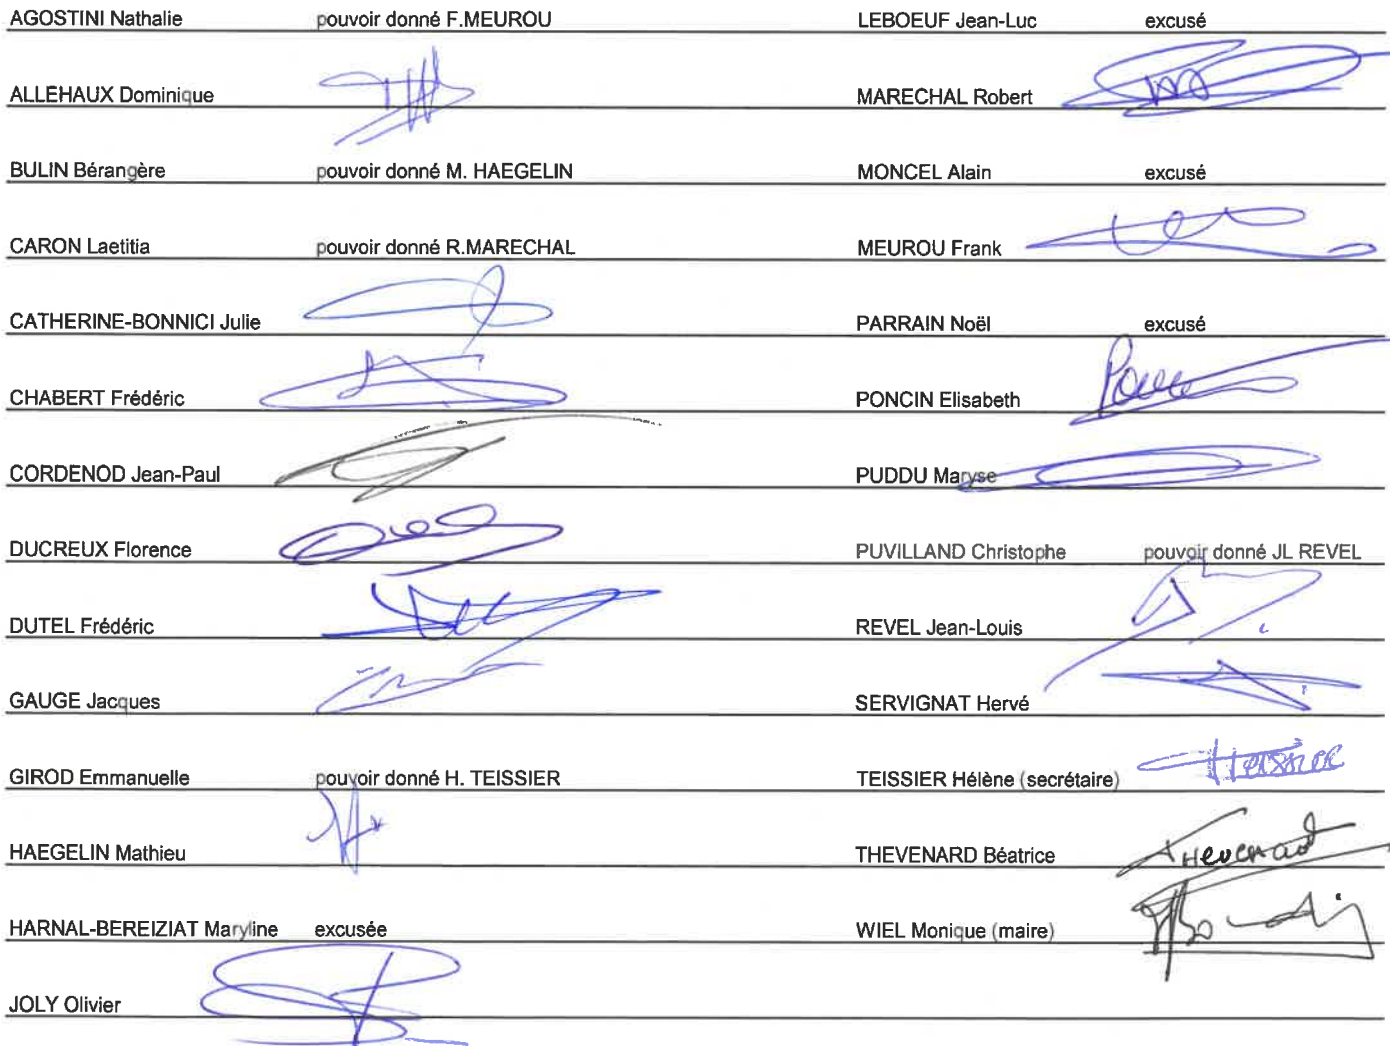 AGOSTINI Nathalie pouvoir donné F.MEUROU
ALLEHAUX Dominique
BULIN Bérangère pouvoir donné M. HAEGELIN
CARON Laetitia pouvoir donné R.MARECHAL
CATHERINE-BONNICI Julie
CHABERT Frédéric
CORDENOD Jean-Paul
DUCREUX Florence
DUTEL Frédéric
GAUGE Jacques
GIROD Emmanuelle pouvoir donné H. TEISSIER
HAEGELIN Mathieu
HARNAL-BEREIZIAT Maryline excusée
JOLY Olivier
LEBOEUF Jean-Luc excusé
MARECHAL Robert
MONCEL Alain excusé
MEUROU Frank
PARRAIN Noël excusé
PONCIN Elisabeth
PUDDU Maryse
PUVILLAND Christophe pouvoir donné JL REVEL
REVEL Jean-Louis
SERVIGNAT Hervé
TEISSIER Hélène (secrétaire) Teissier
THEVENARD Béatrice Thevenard
WIEL Monique (maire)